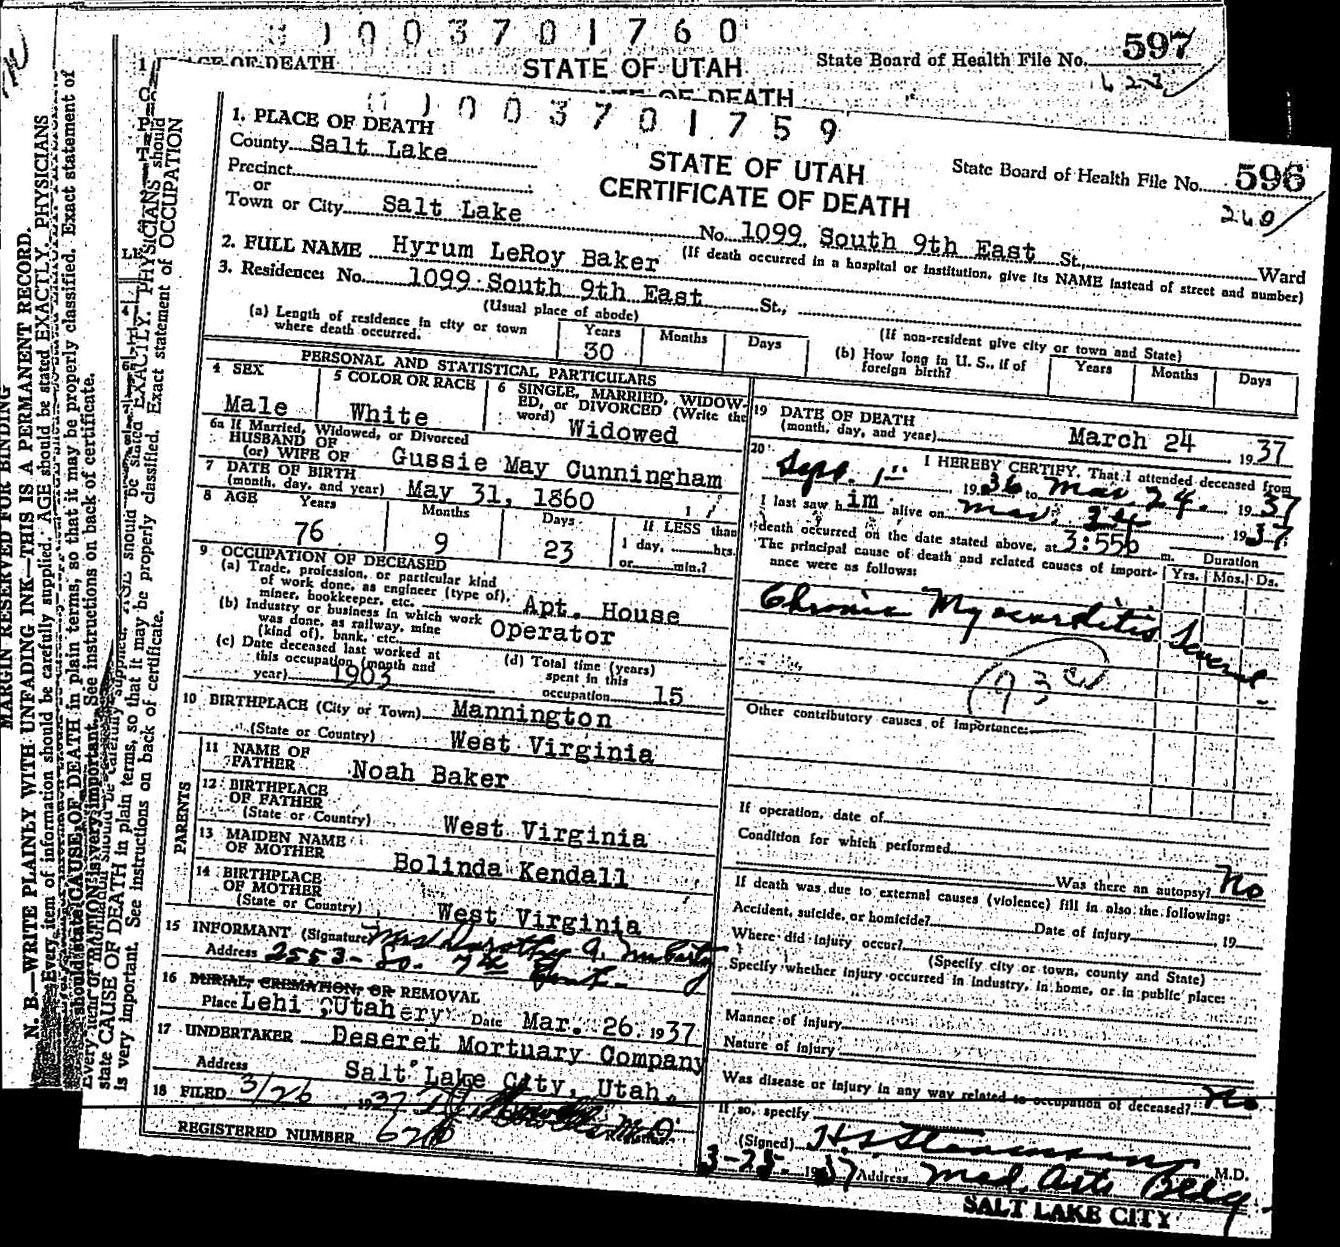 1003701760
STATE OF UTAH
State Board of Health File No. 597
OF DEATH
OF DEATH
1003701759
STATE OF UTAH
CERTIFICATE OF DEATH
State Board of Health File No. 596
260
1. PLACE OF DEATH
County Salt Lake
Precinct
or
Town or City Salt Lake No. 1099 South 9th East St., Ward
(If death occurred in a hospital or institution, give its NAME instead of street and number)
2. FULL NAME Hyrum LeRoy Baker
3. Residence: No. 1099 South 9th East St.,
(Usual place of abode)
(If non-resident give city or town and State)
(a) Length of residence in city or town where death occurred. Years 30 Months Days
(b) How long in U. S., if of foreign birth? Years Months Days
PERSONAL AND STATISTICAL PARTICULARS
4 SEX Male
5 COLOR OR RACE White
6 SINGLE, MARRIED, WIDOWED, or DIVORCED (Write the word) Widowed
6a If Married, Widowed, or Divorced
HUSBAND OF
(or) WIFE OF Gussie May Cunningham
7 DATE OF BIRTH
(month, day, and year) May 31, 1860
8 AGE Years 76 Months 9 Days 23 If LESS than 1 day, hrs. or min.?
9 OCCUPATION OF DECEASED
(a) Trade, profession, or particular kind of work done, as engineer (type of), miner, bookkeeper, etc. Apt. House
(b) Industry or business in which work was done, as railway, mine (kind of), bank, etc. Operator
(c) Date deceased last worked at this occupation (month and year) 1903
(d) Total time (years) spent in this occupation 15
10 BIRTHPLACE (City or Town) Mannington
(State or Country) West Virginia
PARENTS
11 NAME OF FATHER Noah Baker
12 BIRTHPLACE OF FATHER
(State or Country) West Virginia
13 MAIDEN NAME OF MOTHER Bolinda Kendall
14 BIRTHPLACE OF MOTHER
(State or Country) West Virginia
15 INFORMANT (Signature) Mrs Dorothy A. McCarty
Address 2553 - So. 7th East
16 BURIAL, CREMATION, OR REMOVAL
Place Lehi, Utah Date Mar. 26 1937
17 UNDERTAKER Deseret Mortuary Company
Address Salt Lake City, Utah.
18 FILED 3/26 1937
REGISTERED NUMBER
19 DATE OF DEATH
(month, day, and year) March 24 1937
20 I HEREBY CERTIFY, That I attended deceased from
Sept. 1st 1936 to Mar 24. 1937
I last saw him alive on Mar. 24 1937
death occurred on the date stated above, at 3:55p m.
The principal cause of death and related causes of importance were as follows:
Duration
Yrs. Mos. Ds.
Chronic Myocarditis Several
93
Other contributory causes of importance:
If operation, date of
Condition for which performed
Was there an autopsy? No
If death was due to external causes (violence) fill in also the following:
Accident, suicide, or homicide? Date of injury 19
Where did injury occur?
(Specify city or town, county and State)
Specify whether injury occurred in industry, in home, or in public place:
Manner of injury
Nature of injury
Was disease or injury in any way related to occupation of deceased? No
If so, specify
(Signed) M.D.
3-25- 1937 Address Med. Arts Bldg.
SALT LAKE CITY
MARGIN RESERVED FOR BINDING
N. B.—WRITE PLAINLY WITH UNFADING INK—THIS IS A PERMANENT RECORD.
Every item of information should be carefully supplied. AGE should be stated EXACTLY. PHYSICIANS
should state CAUSE OF DEATH in plain terms, so that it may be properly classified. Exact statement of
OCCUPATION is very important. See instructions on back of certificate.
state CAUSE OF DEATH in plain terms, so that it may be properly classified. Exact statement of OCCUPATION
is very important. See instructions on back of certificate.